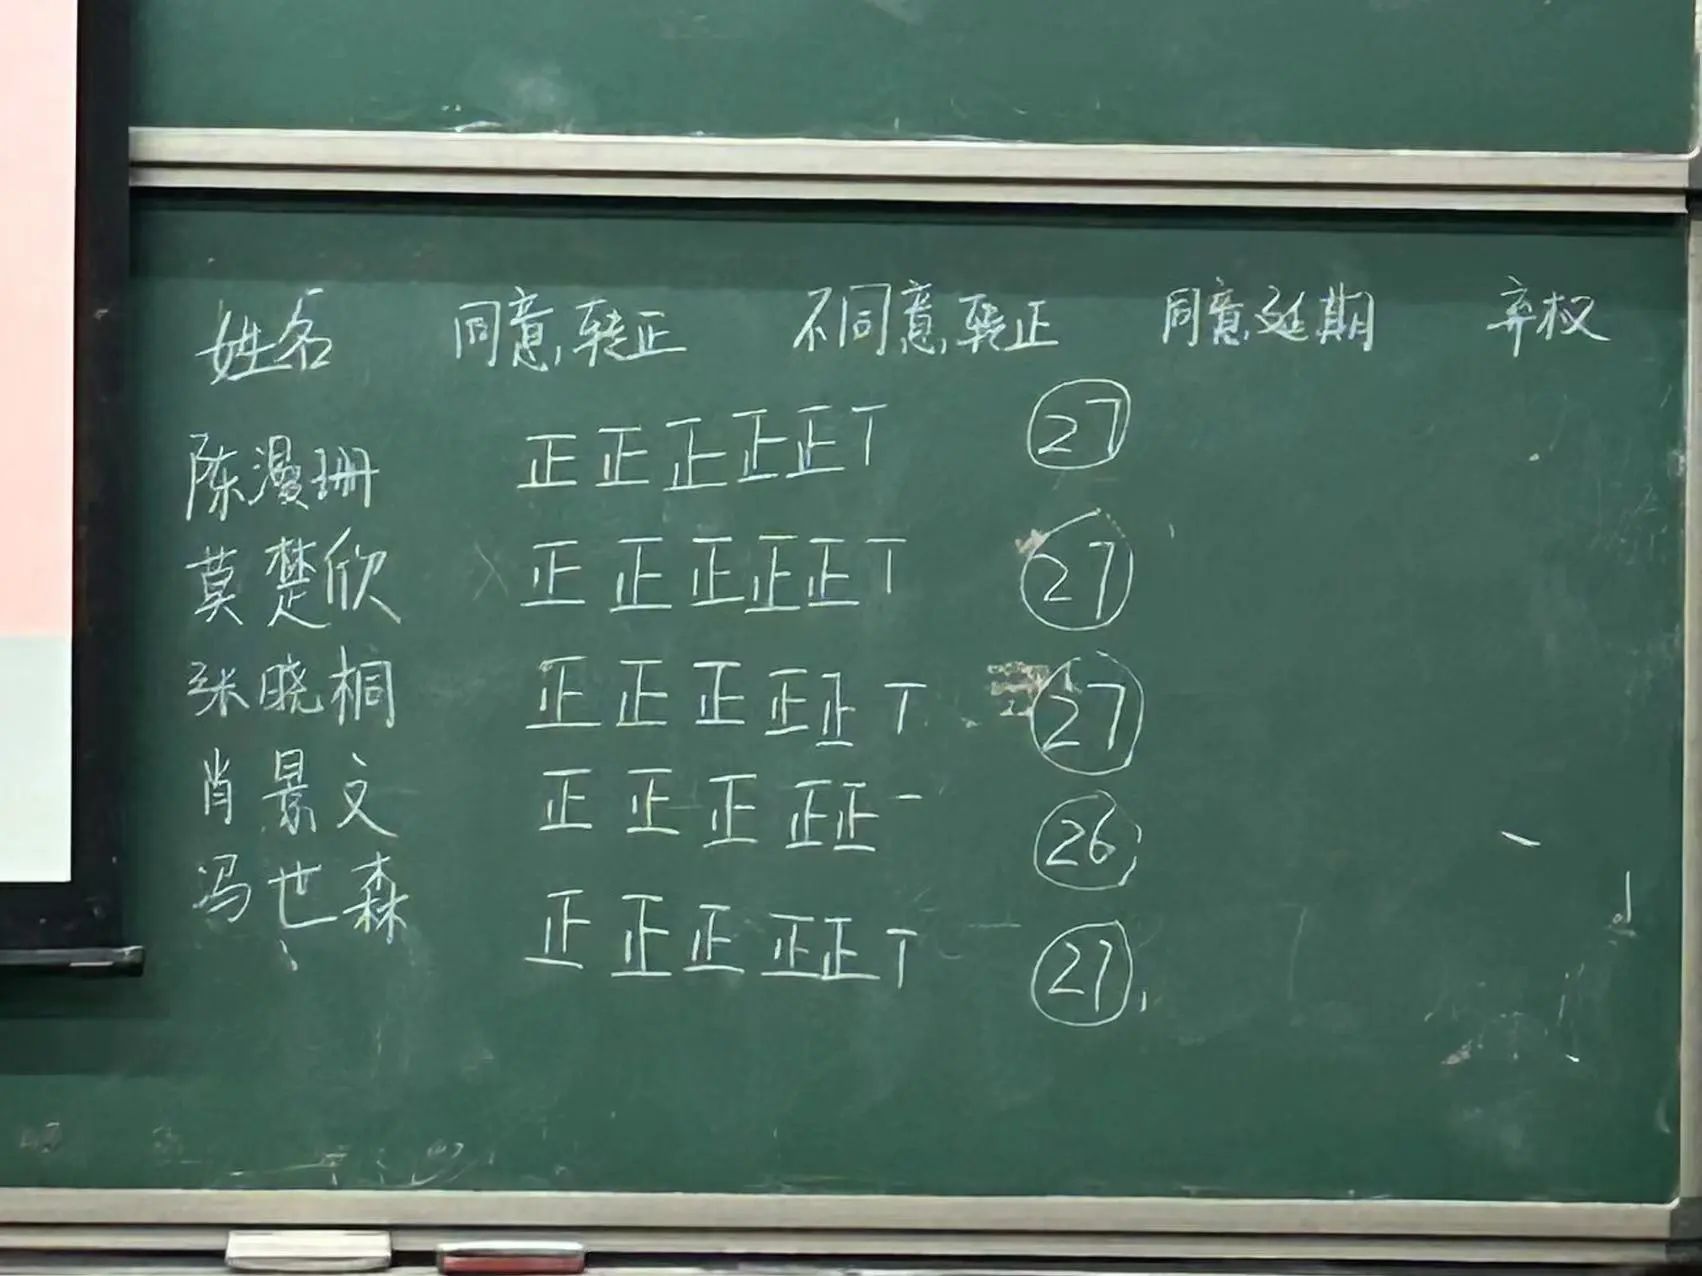 姓名 同意转正 不同意转正 同意延期 弃权
陈漫珊 正正正正正丅 27
莫楚欣 正正正正正丅 27
张晓桐 正正正正正丅 27
肖景文 正正正正正一 26 一
冯世森 正正正正正丅 27